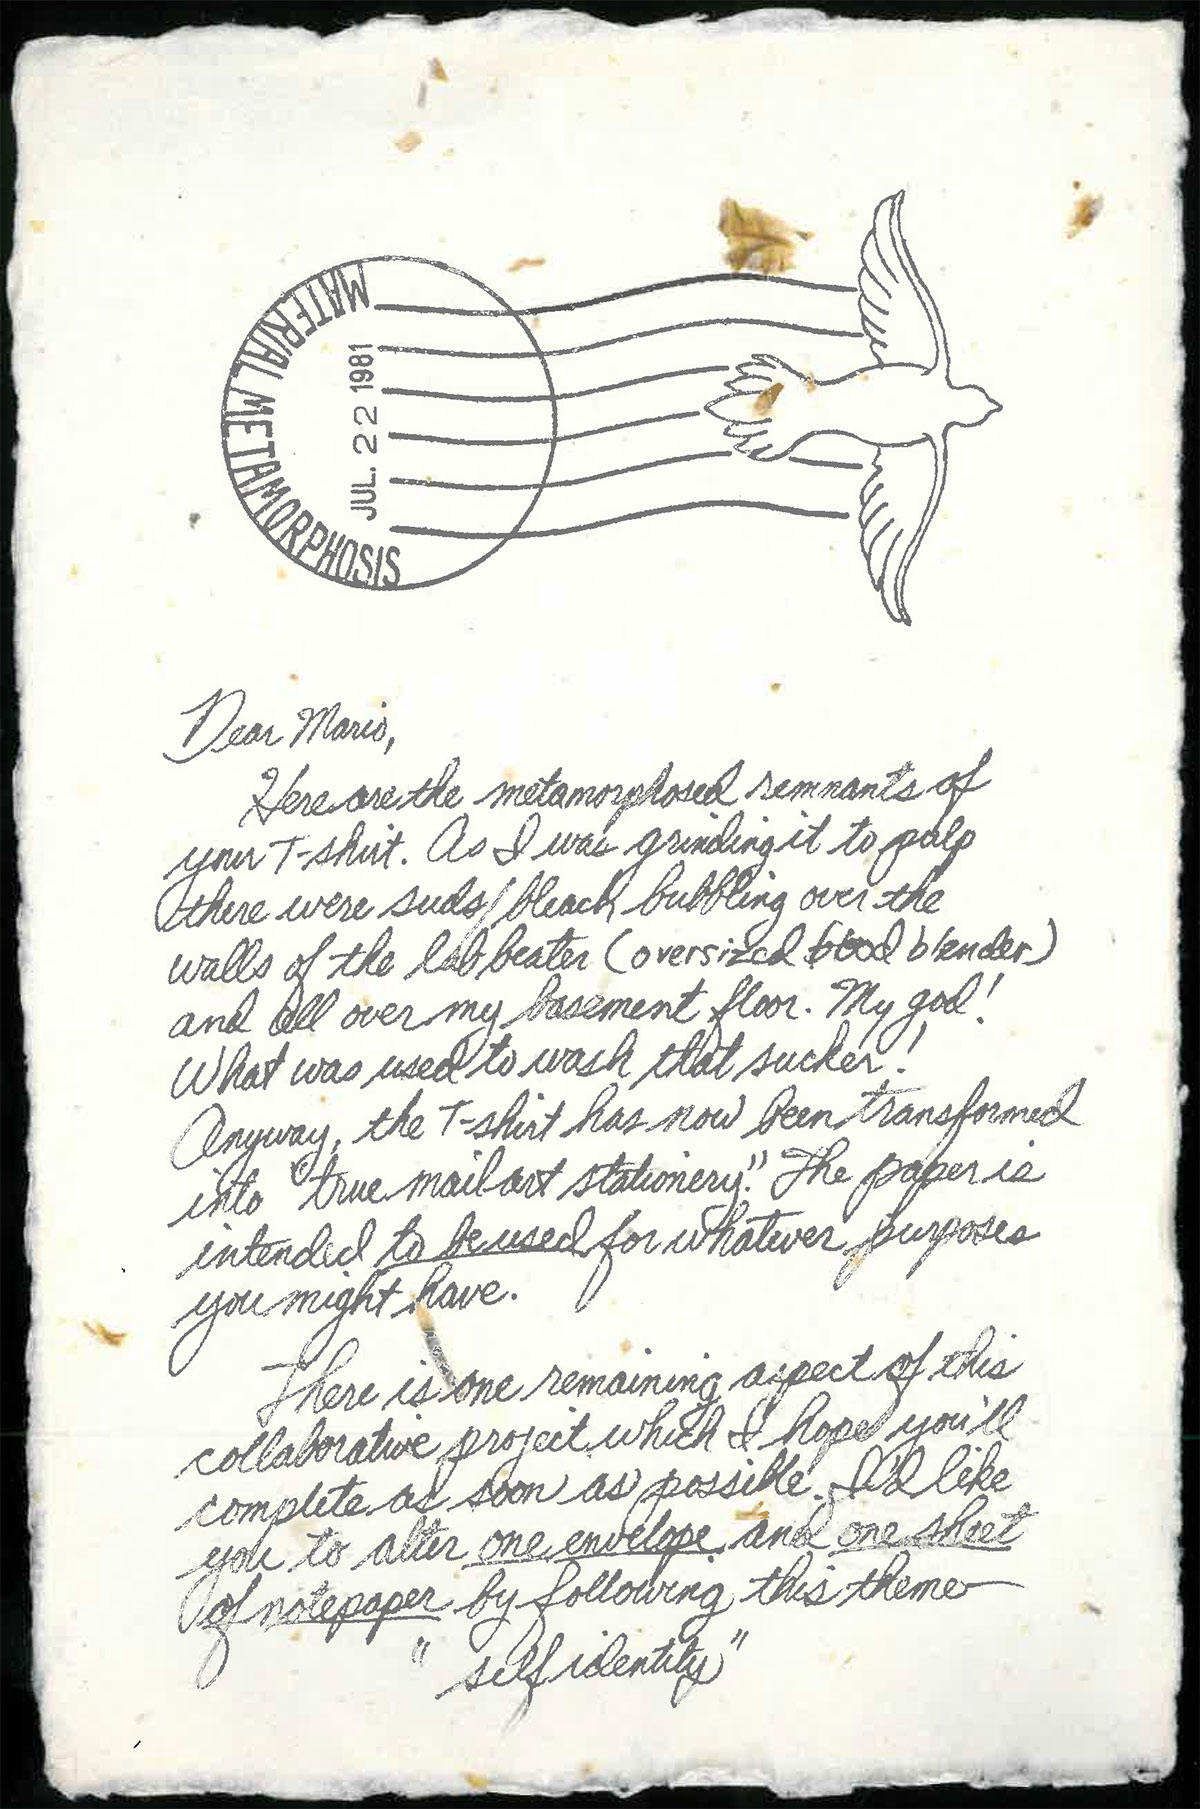 MATERIAL METAMORPHOSIS
JUL. 22 1981
Dear Mario,
Here are the metamorphosed remnants of
your T-shirt. As I was grinding it to pulp
there were suds/bleach bubbling over the
walls of the lab beater (oversized blender)
and all over my basement floor. My god!
What was used to wash that sucker!
Anyway, the T-shirt has now been transformed
into "true mail art stationery." The paper is
intended to be used for whatever purposes
you might have.
There is one remaining aspect of this
collaborative project which I hope you'll
complete as soon as possible. I'd like
you to alter one envelope and one sheet
of notepaper by following this theme—
"self identity"